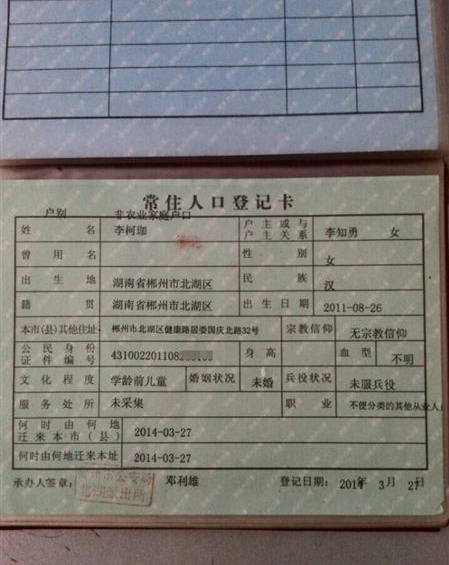 常住人口登记卡
户别 非农业家庭户口
姓名 李柯珈 户主或与户主关系 李知勇 女
曾用名 性别 女
出生地 湖南省郴州市北湖区 民族 汉
籍贯 湖南省郴州市北湖区 出生日期 2011-08-26
本市(县)其他住址 郴州市北湖区健康路居委国庆北路32号 宗教信仰 无宗教信仰
公民身份证件编号 431002201108 身高 血型 不明
文化程度 学龄前儿童 婚姻状况 未婚 兵役状况 未服兵役
服务处所 未采集 职业 不便分类的其他从业人
何时由何地迁来本市(县) 2014-03-27
何时由何地迁来本址 2014-03-27
承办人签章: 邓利雄 登记日期: 2014年 3月 27日
北湖派出所